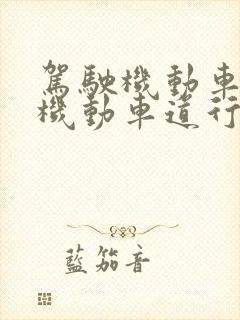 駕駛機動車
機動車道行
藍笳音